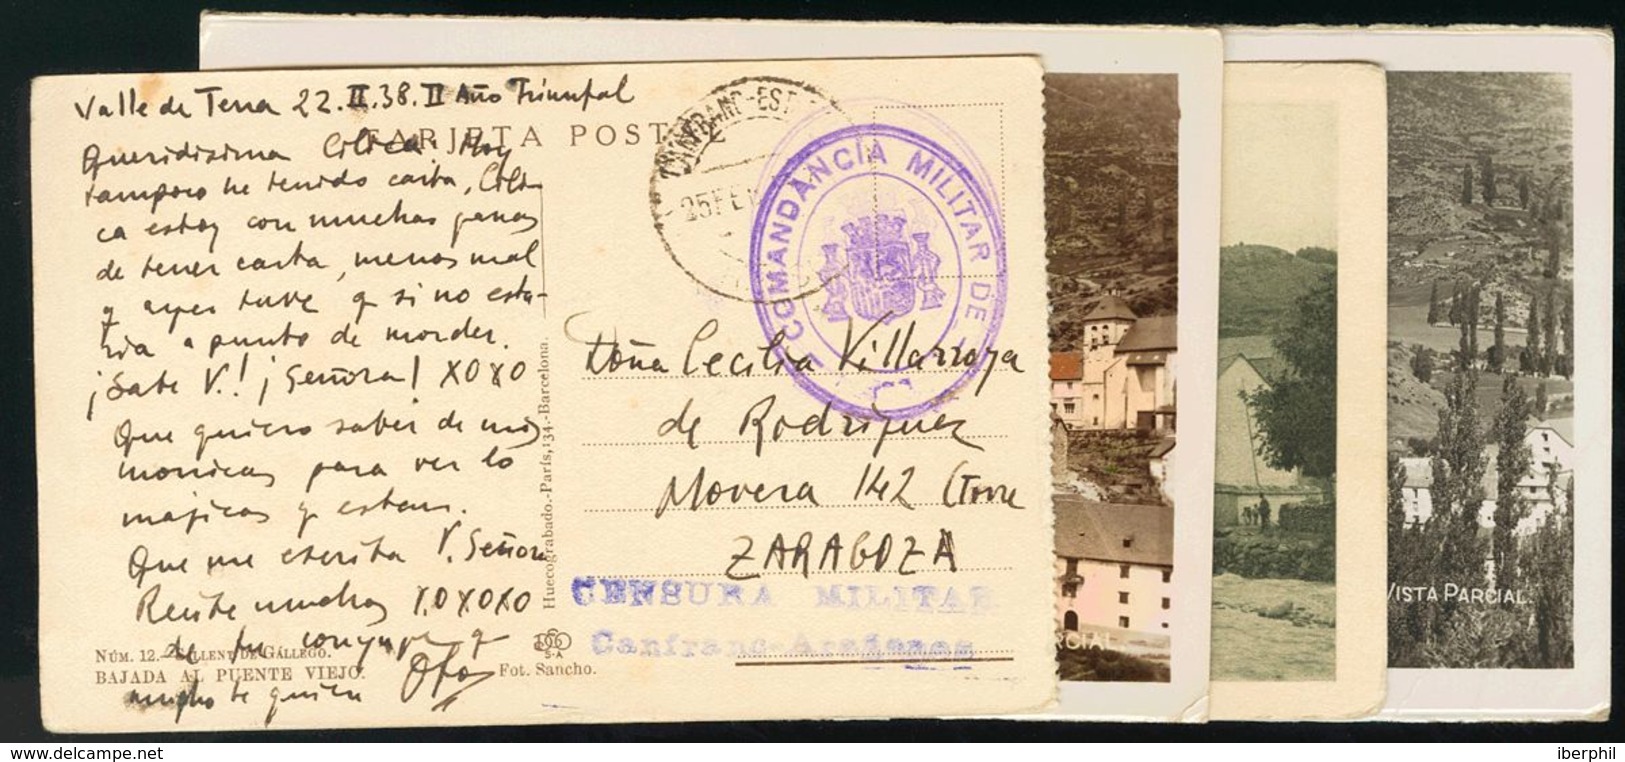 Valle de Tena 22.II.38. II Año Triunfal
TARJETA POSTAL
Queridisima Cilica. Hoy
tampoco he tenido carta, Cili-
ca estoy con muchas ganas
de tener carta, menos mal
q ayer tuve q si no esta-
ria a punto de morder.
¡Sabe V.! ¡Señora! XOXO
Que quiero saber de mis
monicas para ver lo
májicas q estan.
Que me escriba V. Señora
Recibe muchos XOXOXO
de tu conyuge q
mucho te quiere
NÚM. 12.-SALLENT DE GÁLLEGO.
BAJADA AL PUENTE VIEJO.
Fot. Sancho.
Huecograbado.-París,134.-Barcelona.
CANFRANC-EST
25 FEB
COMANDANCIA MILITAR DE
Doña Cecilia Villarroya
de Rodríguez
Movera 142 (Torre
ZARAGOZA
CENSURA MILITAR
Canfranc-Arañones
RCIAL
VISTA PARCIAL.
www.delcampe.net
iberphil